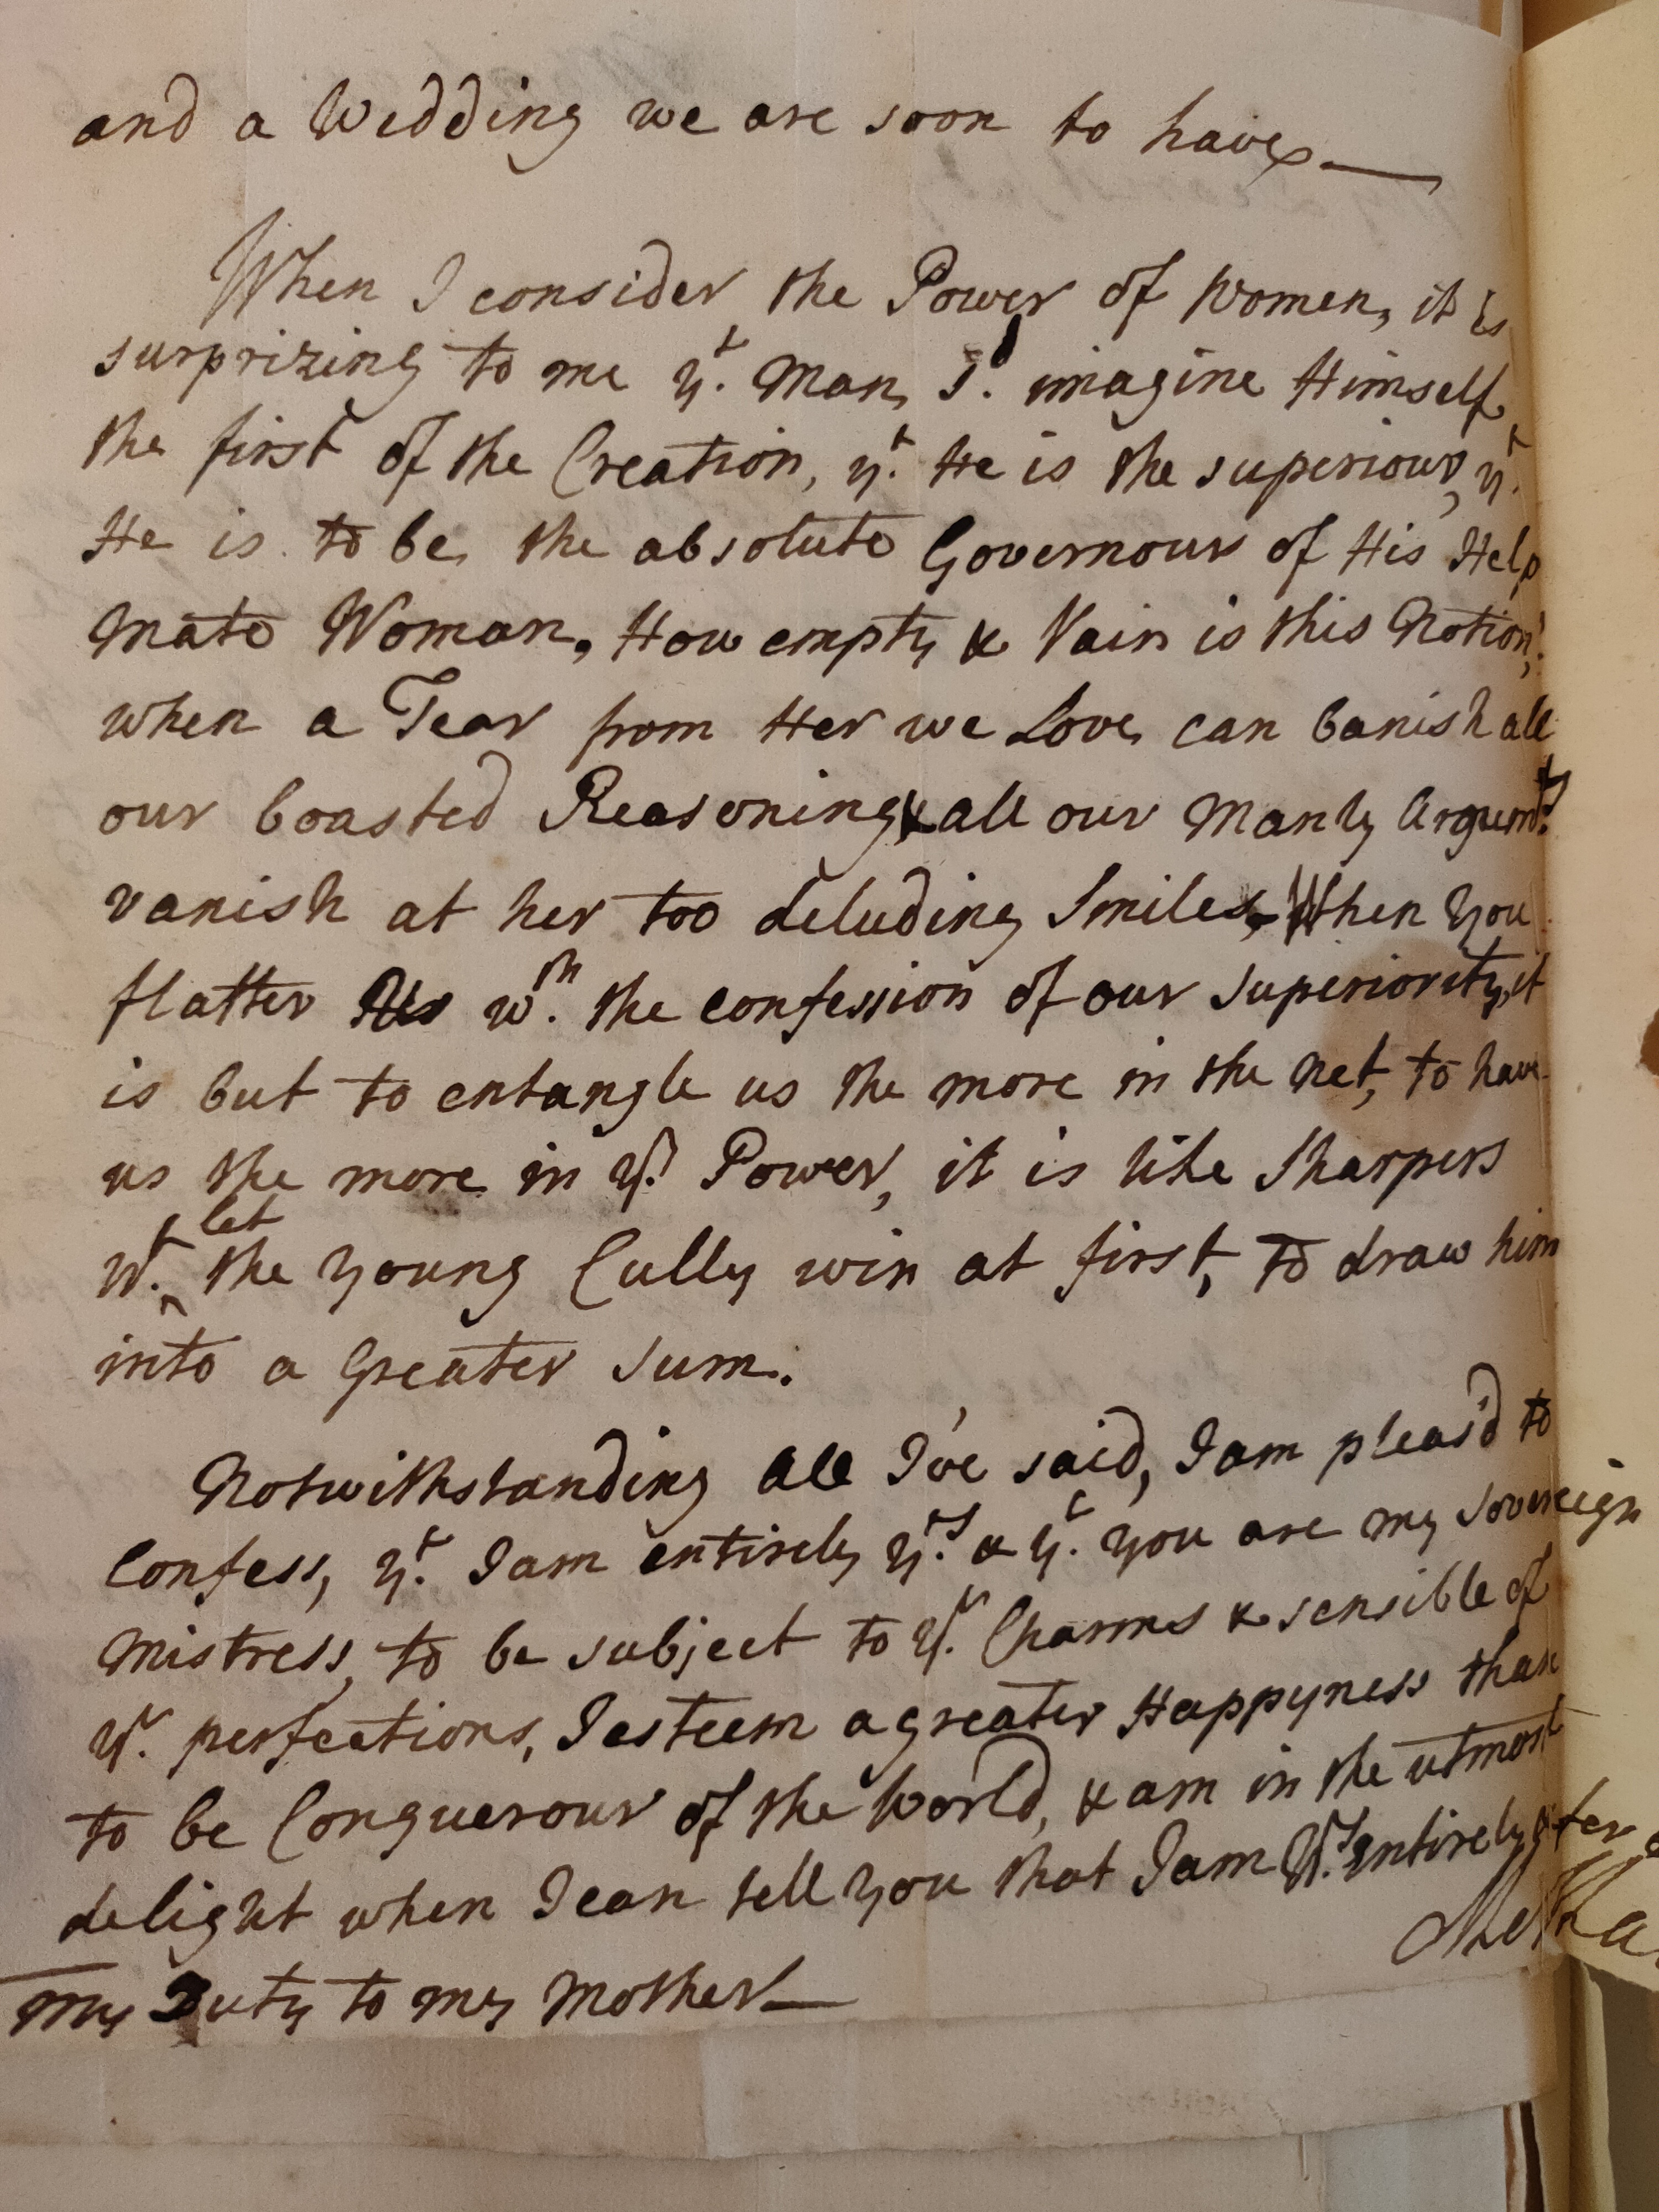 and a Wedding we are soon to have
When I consider the Power of Women, it is
surprizing to me yt. Man, sd. imagine Himself
the first of the Creation, yt. He is the superiour, yt.
He is to be, the absolute Governour of His Help
Mate Woman, How empty & Vain is this Notion,
when a Tear from Her we Love, can banish all
our boasted Reasoning & all our Manly Argumts.
vanish at her too deluding Smiles, When you
flatter Us wth. the confession of our superiority, it
is but to entangle us the more in the Net, to have
us the more in yr. Power, it is like Sharpers
wt. let the young Cully win at first, to draw him
into a Greater Sum.
Notwithstanding all I've said, I am pleas'd to
Confess, yt. I am entirely yrs. & yt. you are my Sovereign
Mistress, to be subject to yr. Charms & sensible of
yr. perfections, I esteem a greater Happyness than
to be Conquerour of the World, & am in the utmost
delight when I can tell you that I am yrs. entirely
My Duty to my Mother